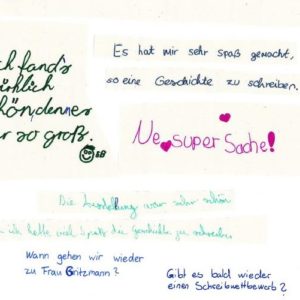 ch fand's
schön, denn es
r so groß.
Es hat mir sehr spaß gemacht,
so eine Geschichte zu schreiben.
Ne super Sache!
Die Ausstellung war sehr schön
ich hatte viel Spaß die geschichte zu schreiben
Wann gehen wir wieder
zu Frau Gritzmann?
Gibt es bald wieder
einen Schreibwettbewerb?